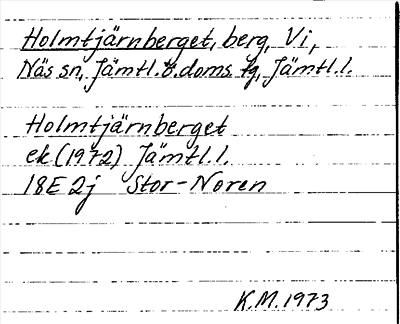 Holmtjärnberget, berg, Vi,
Näs sn, Jämtl. ö. doms tg, Jämtl. l.
Holmtjärnberget
ek (1972) Jämtl. l.
18E 2j Stor-Noren
K.M. 1973